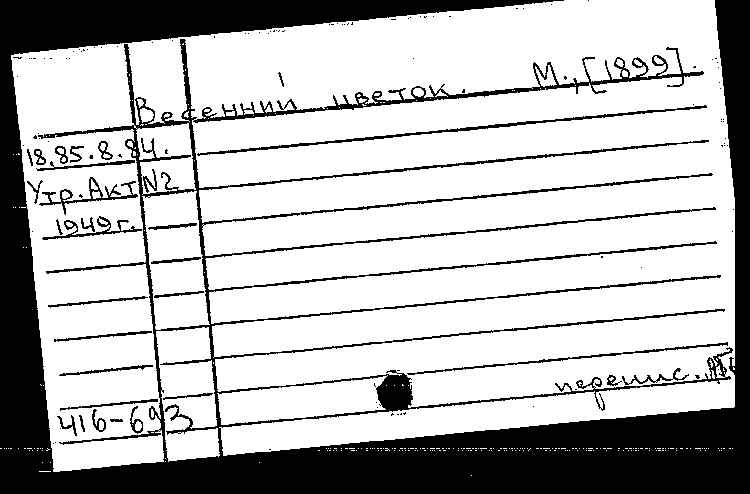 Весенний цветок. М., [1899].
18.85.8.84.
Утр. Акт N2
1949 г.
416-693
перепис.